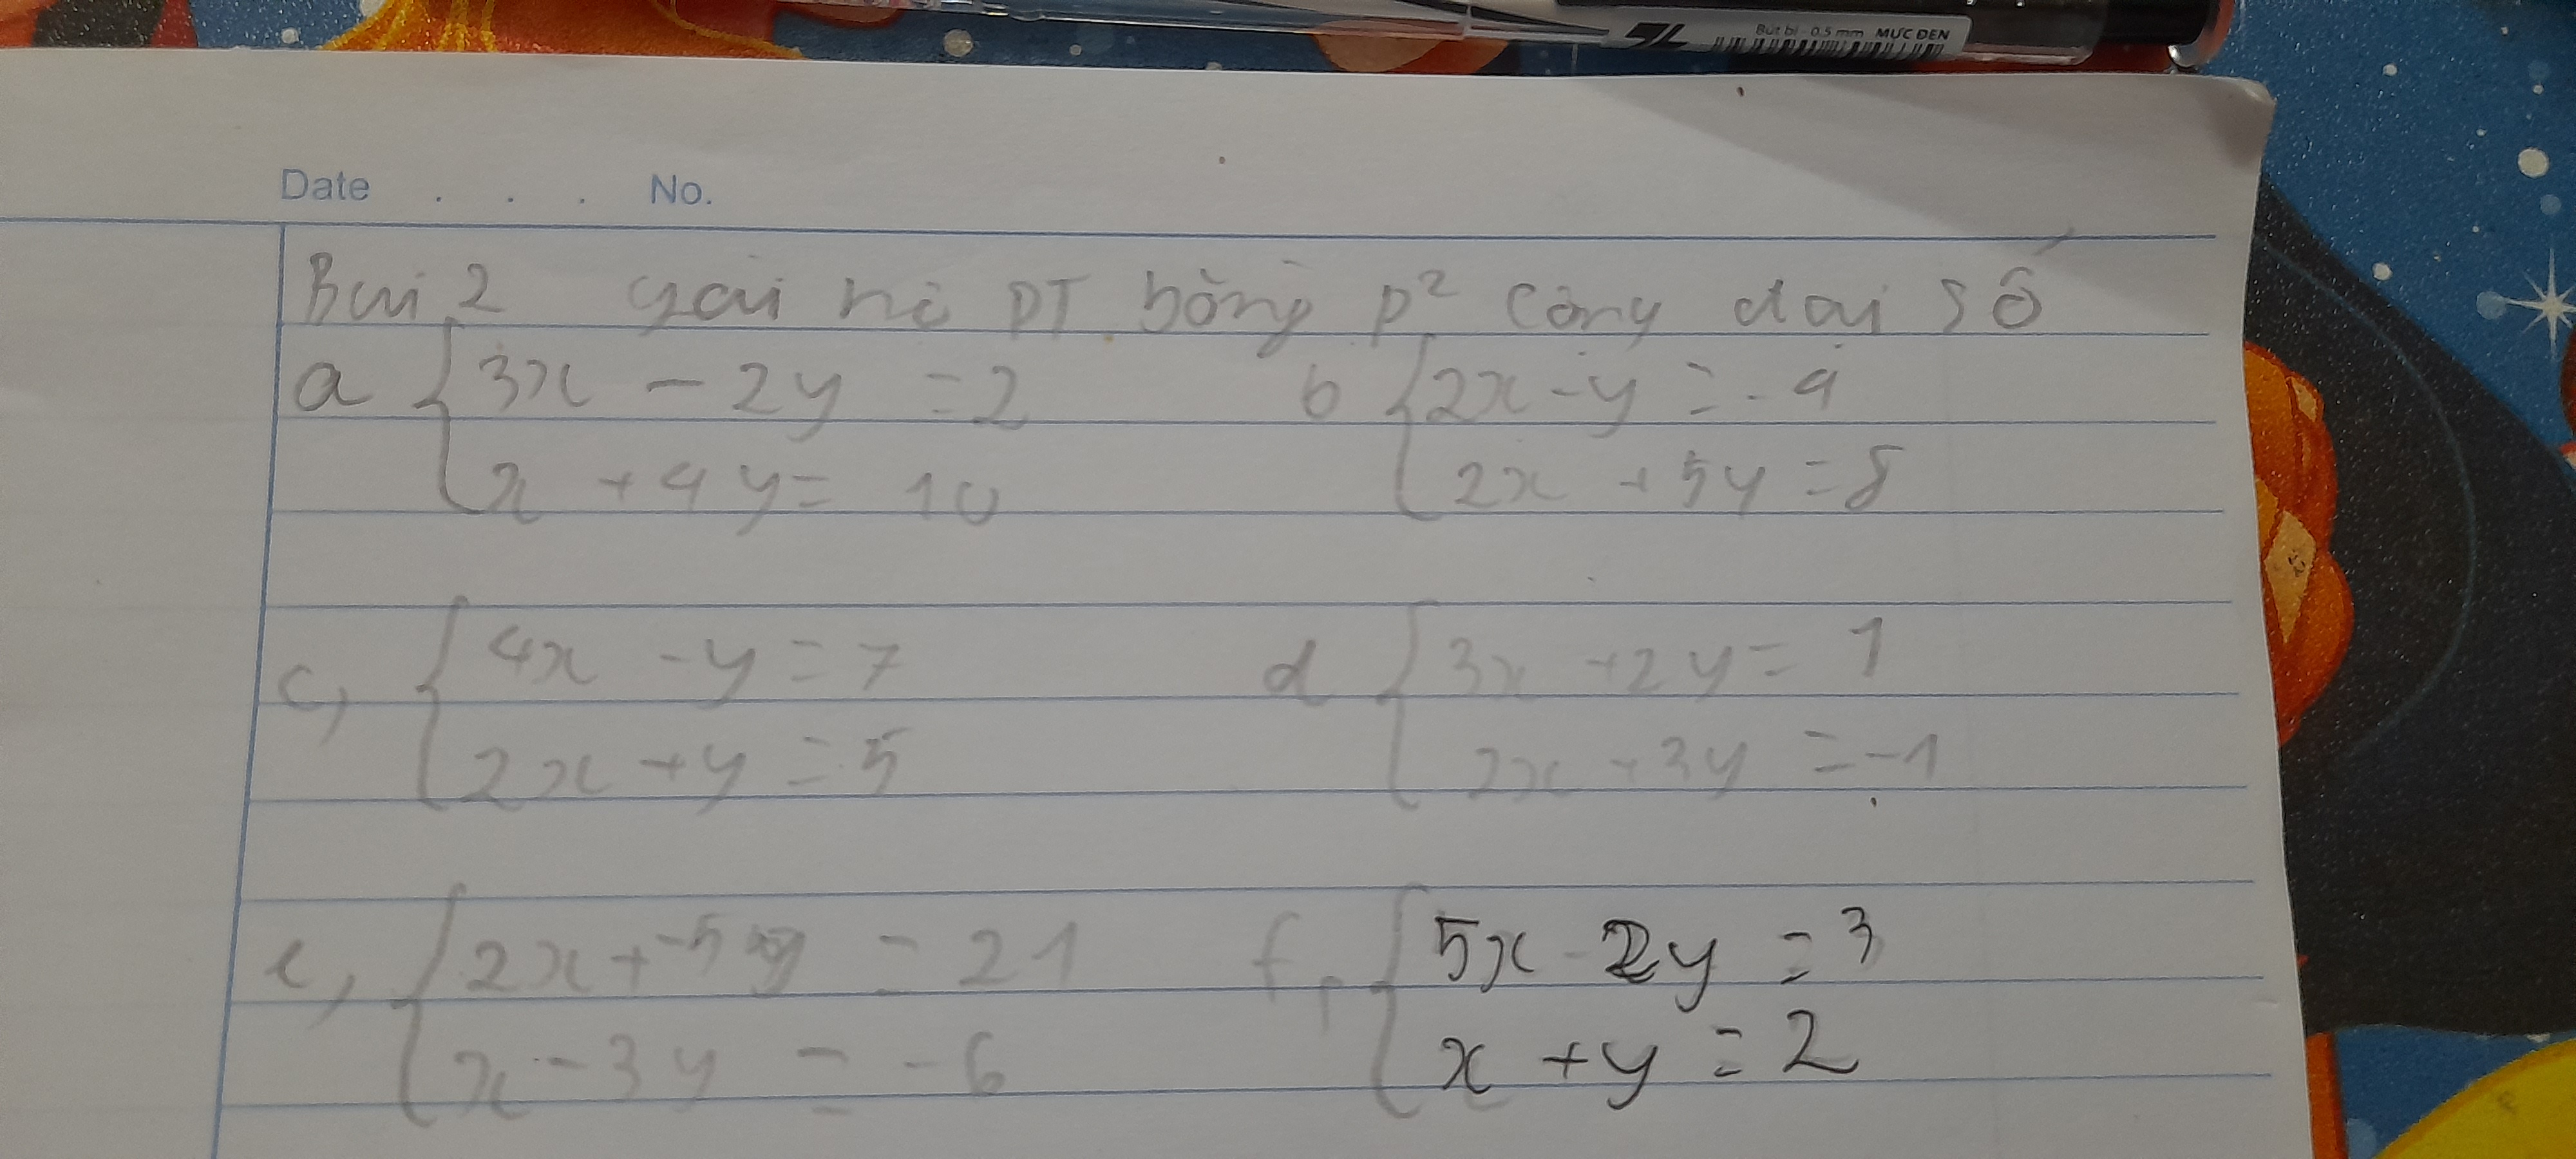 Bút bi - 0.5 mm MỰC ĐEN
Date . . . No.
Bài 2 giải hệ PT bằng p² cộng đại số
a { 3x - 2y = 2
x + 4y = 10
b { 2x - y = -4
2x + 5y = 8
c, { 4x - y = 7
2x + y = 5
d { 3x + 2y = 1
2x + 3y = -1
e, { 2x + 5y = 21
x - 3y = -6
f, { 5x - 2y = 3
x + y = 2